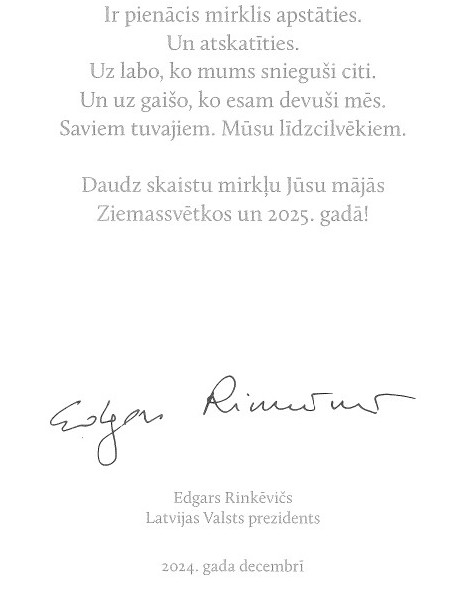 Ir pienācis mirklis apstāties.
Un atskatīties.
Uz labo, ko mums snieguši citi.
Un uz gaišo, ko esam devuši mēs.
Saviem tuvajiem. Mūsu līdzcilvēkiem.
Daudz skaistu mirkļu Jūsu mājās
Ziemassvētkos un 2025. gadā!
Edgars Rinkēvičs
Edgars Rinkēvičs
Latvijas Valsts prezidents
2024. gada decembrī